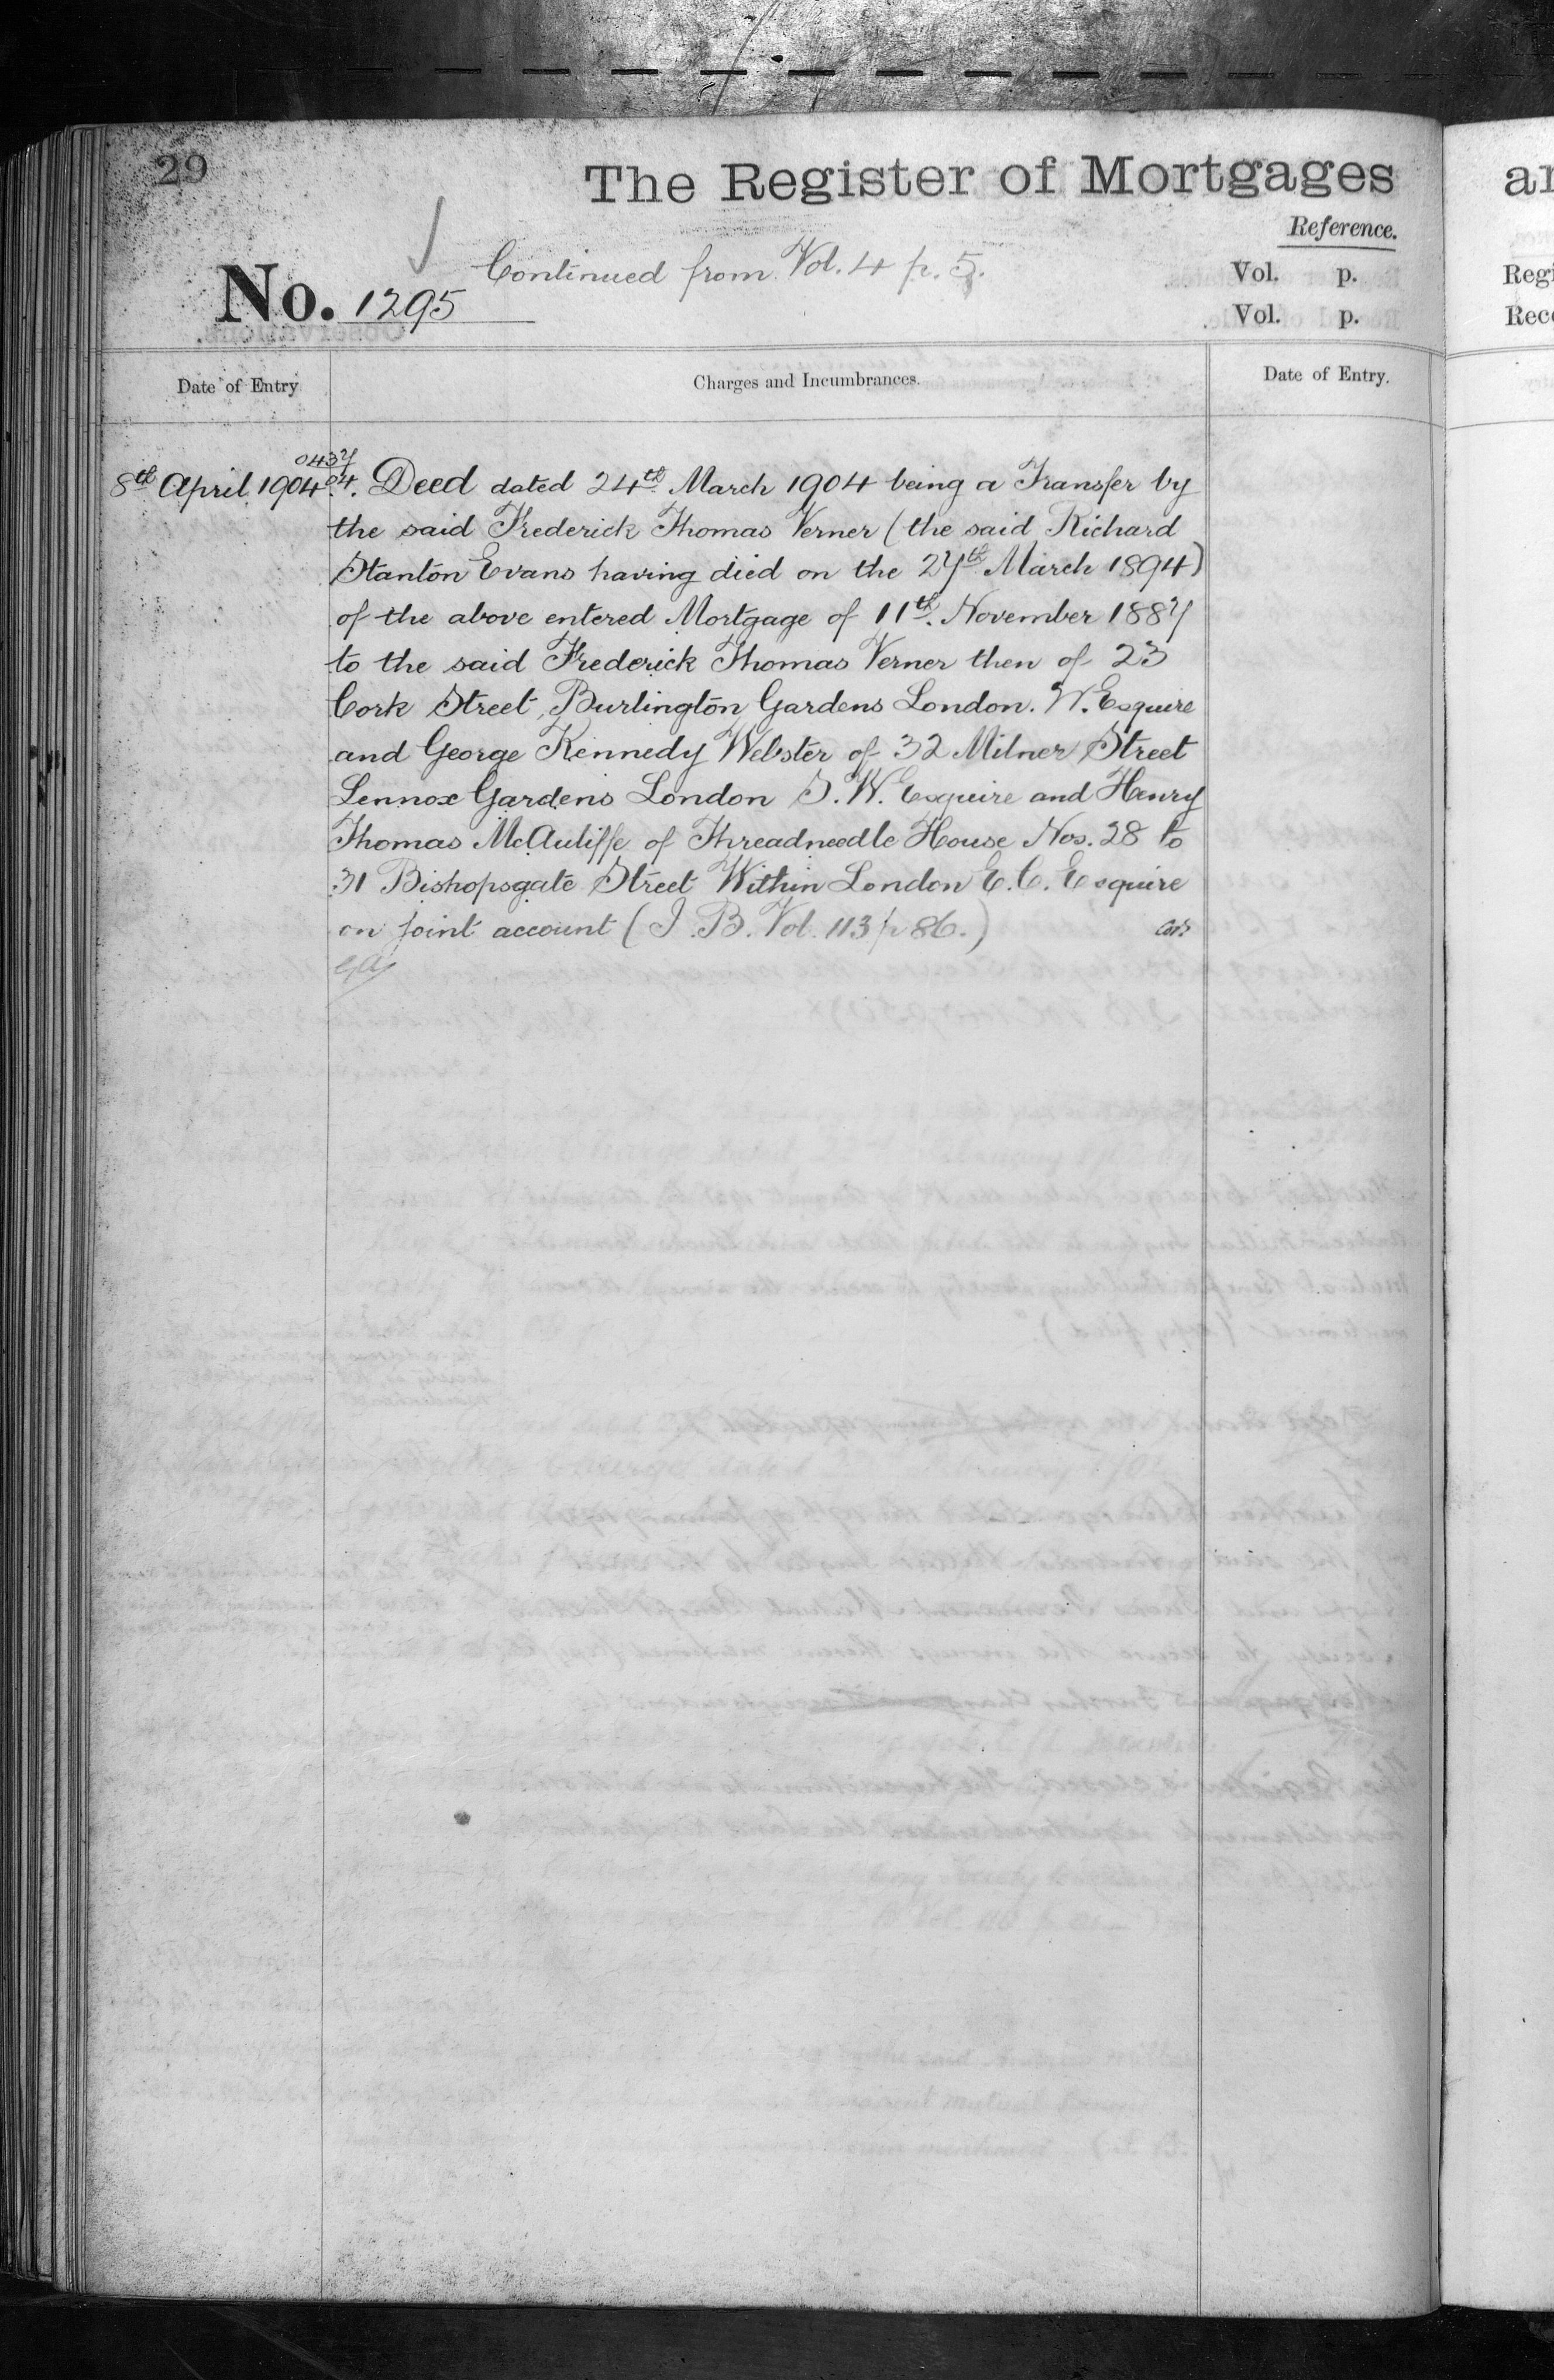 29
The Register of Mortgages
Reference.
Continued from Vol. 4 p. 5.
Vol. p.
No. 1295
Vol. p.
Date of Entry
Charges and Incumbrances.
Date of Entry.
8th April 1904
0437
04.
Deed dated 24th March 1904 being a Transfer by
the said Frederick Thomas Verner (the said Richard
Stanton Evans having died on the 27th March 1894)
of the above entered Mortgage of 11th November 1887
to the said Frederick Thomas Verner then of 23
Cork Street, Burlington Gardens London. W. Esquire
and George Kennedy Webster of 32 Milner Street
Lennox Gardens London S.W. Esquire and Henry
Thomas McAuliffe of Threadneedle House Nos. 28 to
31 Bishopsgate Street Within London E.C. Esquire
on joint account (I.B. Vol. 113 p 86.)
ar
Regi
Rec